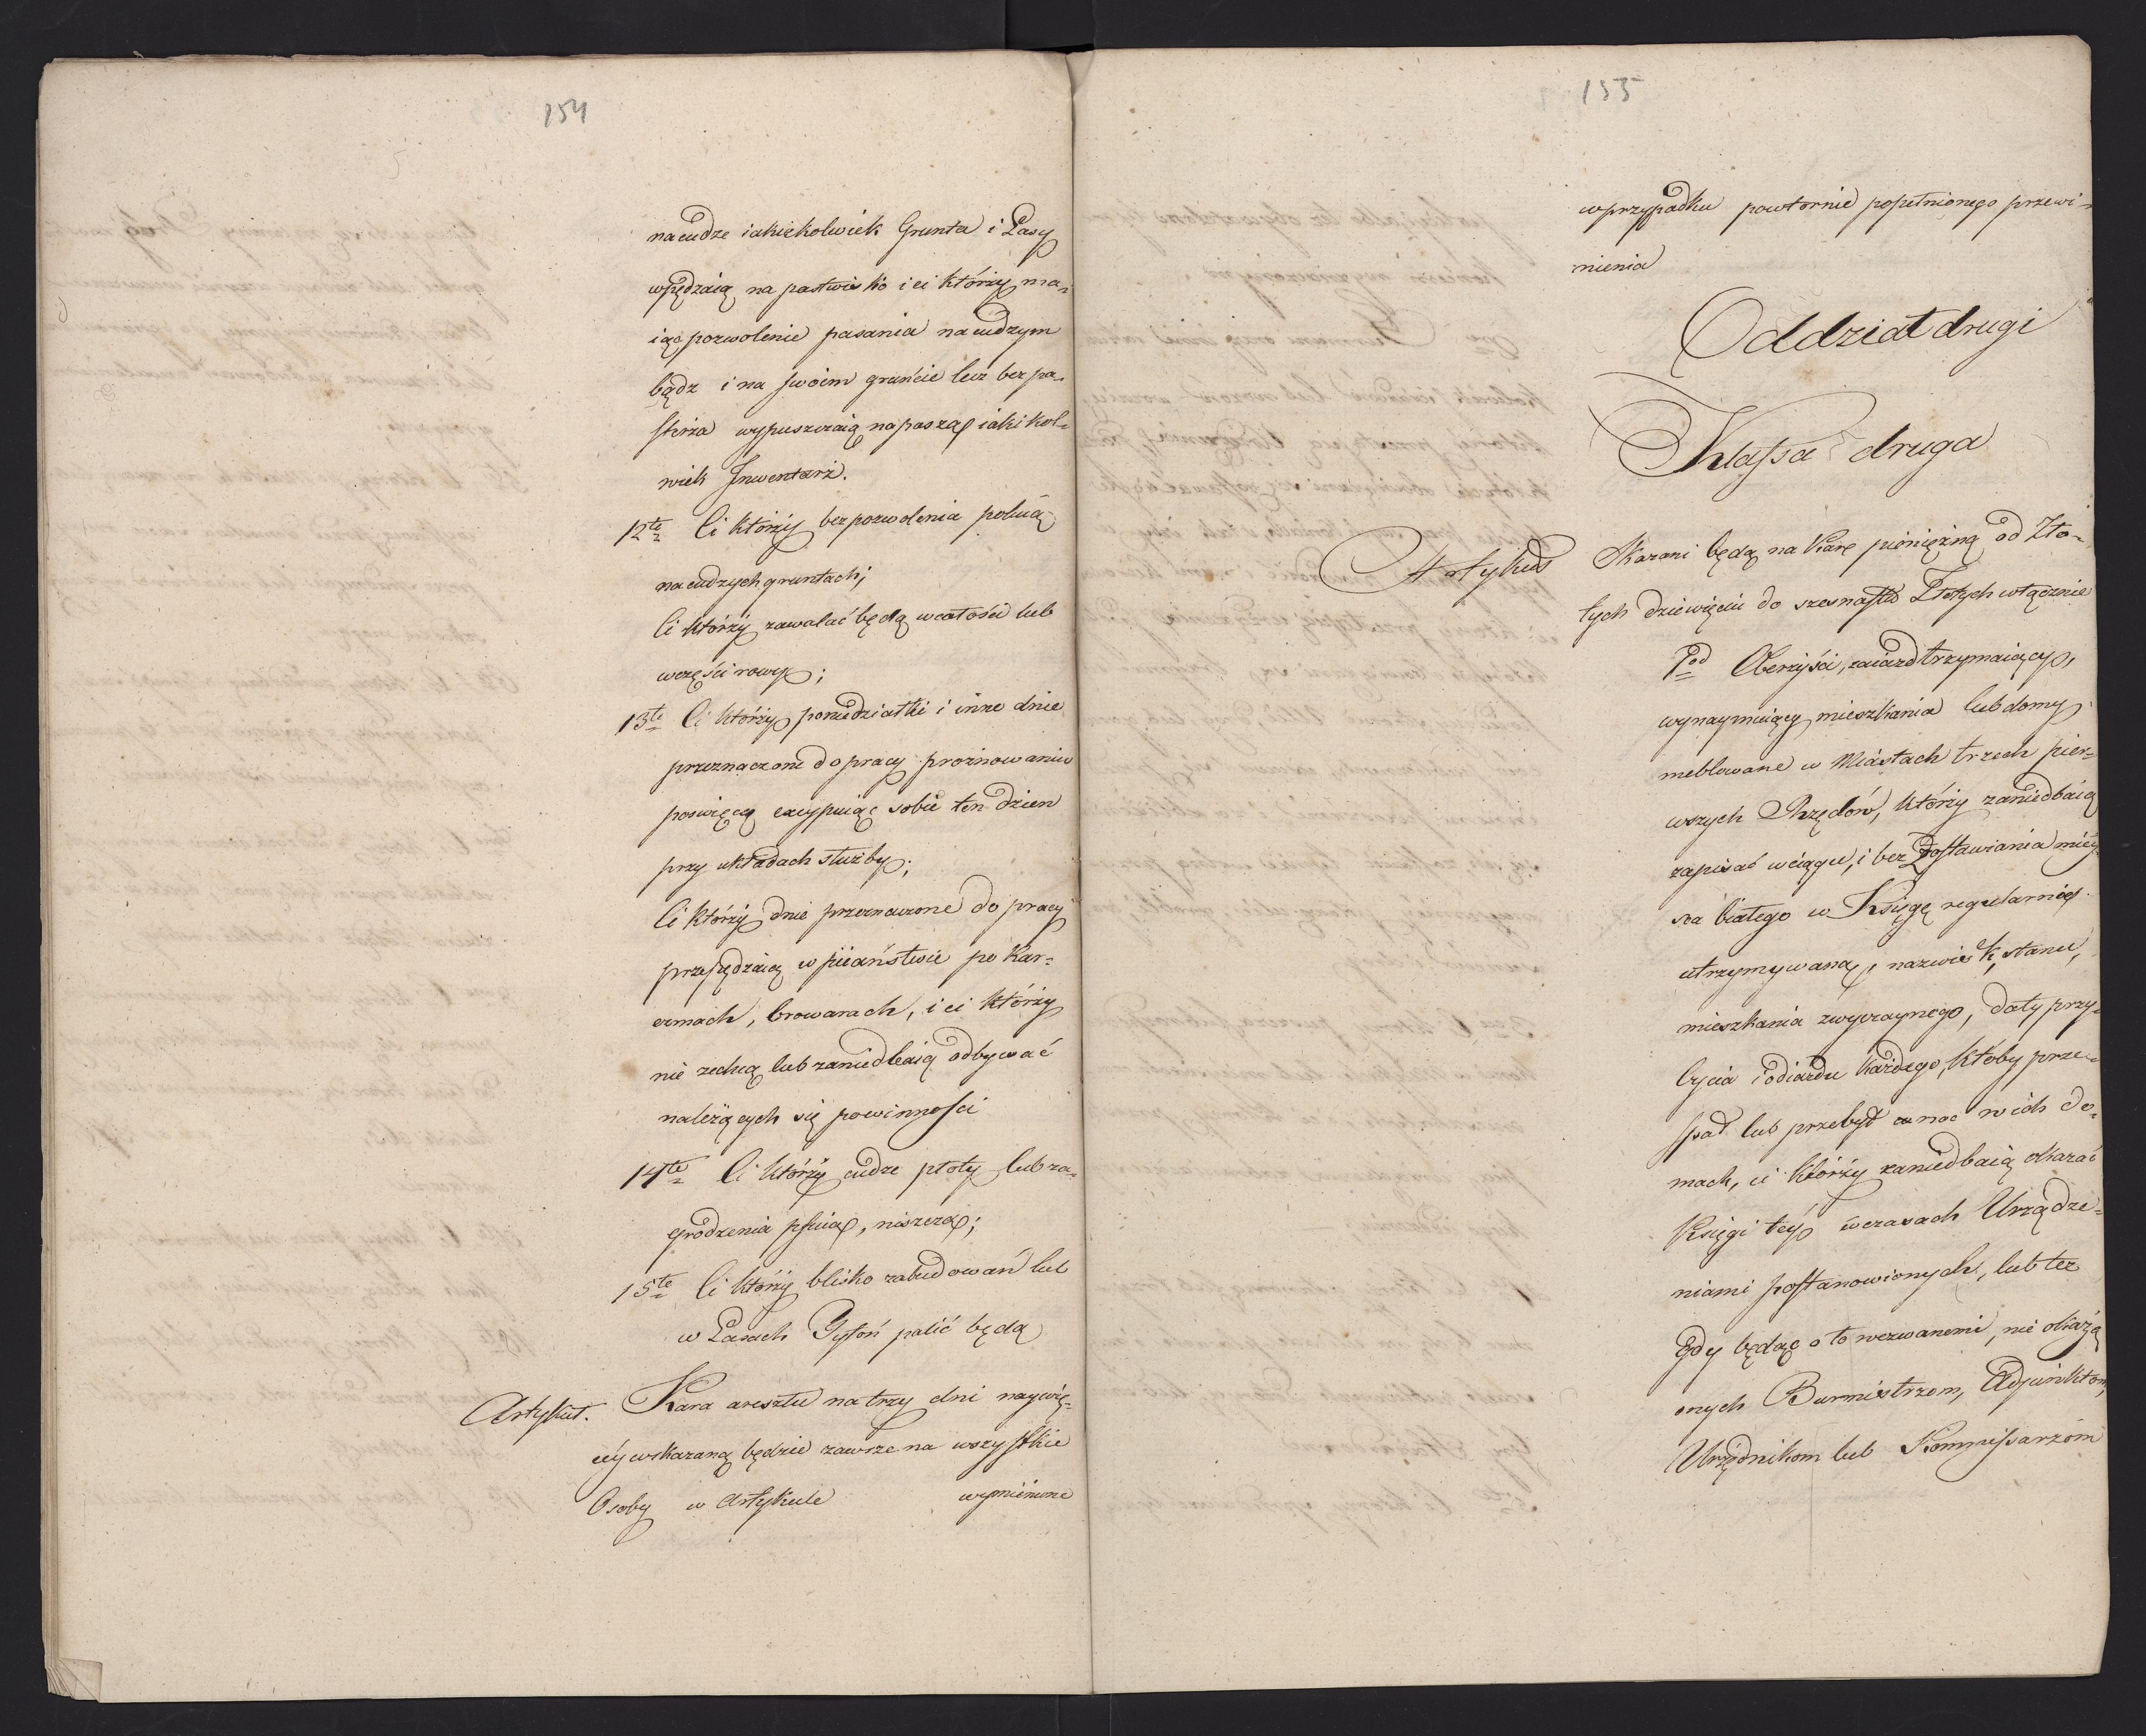 154
na cudze iakiekolwiek Grunta i Lasy
wpędzaią na pastwisko i ci którzy ma-
iąc pozwolenie pasania na cudzym
bądz i na swoim gruncie lecz bez pa-
stérza wypuszczaią na paszą iakikol-
wiek Inwentarz.
12te Ci którzy bez pozwolenia poluią
na cudzych gruntach;
Ci którzy zawalać będą w całości lub
w części rowy;
13te Ci którzy poniedziałki i inne dnie
przeznaczone do pracy prożnowaniu
poswięcą excypuiąc sobie ten dzien
przy układach służby;
Ci którzy dnie przeznaczone do pracy
przepędzaią w piiaństwie po Kar-
czmach, browarach, i ci którzy
nie zechcą lub zaniedbaią odbywać
należących się powinności
14te Ci którzy cudze płoty lub za-
grodzenia psuią, niszczą;
15te Ci którzy blisko zabudowań lub
w Lasach Tytoń palić będą
Artykuł. Kara aresztu na trzy dni naywię-
céy wskazaną będzie zawsze na wszystkie
Osoby w Artykule wymienione
155
w przypadku powtornie popełnionego przewi-
nienia
Oddział drugi
Klassa druga
Artykuł Skazani będą na Karę pieniężną od Zło-
tych dziewięciu do szesnastu Złotych włącznie
1od Oberzyści, zaiazd trzymaiący,
wynaymuiący mieszkania lub domy
meblowane w Miastach trzech pier-
wszych Rzędów, którzy zaniedbaią
zapisać w ciągu, i bez zostawiania miey-
sca białego w Księgę regularnie
utrzymywaną, nazwisk, stanu,
mieszkania zwyczaynego, daty przy-
bycia i odiazdu każdego, ktoby prze-
spał lub przebył noc w ich do-
mach, ci którzy zaniedbaią okazać
Księgi téy w czasach Urządze-
niami postanowionych, lub też
gdy będąc o to wezwanemi, nie okażą
onych Burmistrzom, Adjunktom,
Urzędnikom lub Kommissarzom